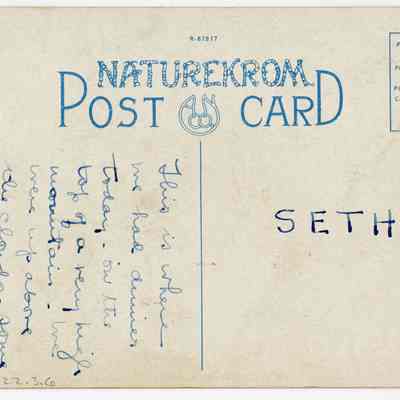 R-87917
NATUREKROM
POST CARD
This is where
we had dinner
today - on the
top of a very high
mountain - We
were up above
the clouds - some
SETH
22.3.60